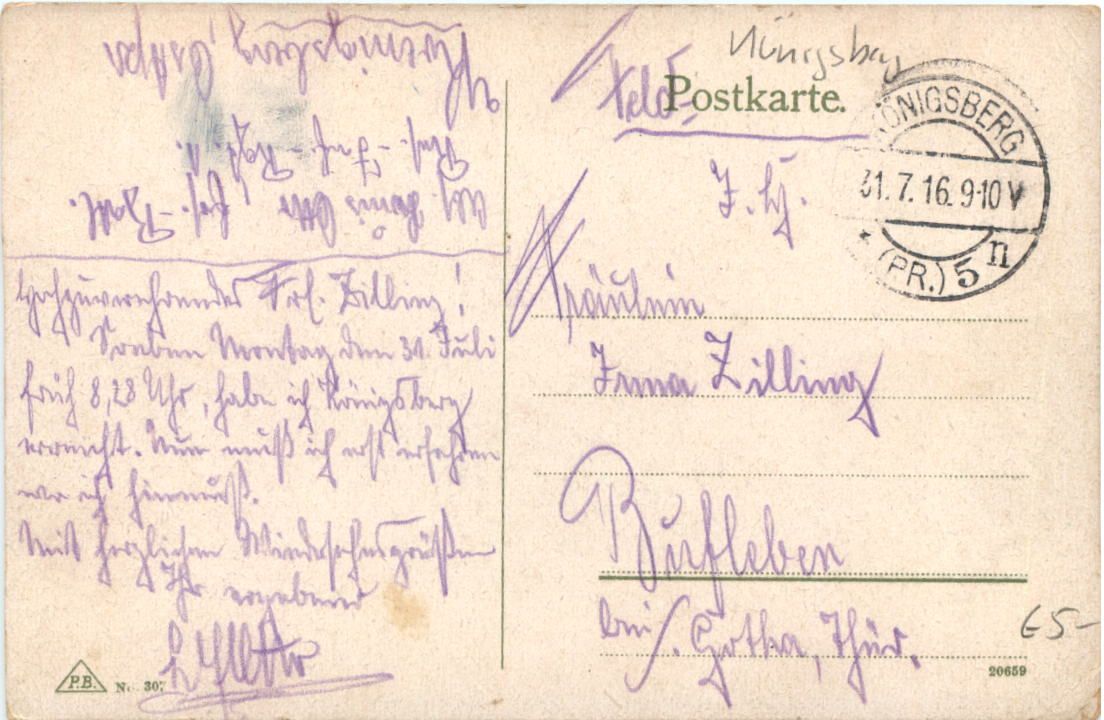 Königsberg
Feld-
Postkarte.
KÖNIGSBERG
31.7.16. 9-10 V
* (PR.) 5 n
Königsberg
Res.-Inf.-Regt.
Otto
Hochzuverehrendes Frl. Zilling!
Soeben Montag den 31. Juli
früh 8,28 Uhr, habe ich Königsberg
erreicht. Nun muß ich erst erfahren
wo ich hinmuß.
Mit herzlichen Wiedersehnsgrüßen
Ihr ergebener
Otto
Fräulein
Irma Zilling
Bufleben
bei Gotha, Thür.
€5-
P.B. No. 307
20659